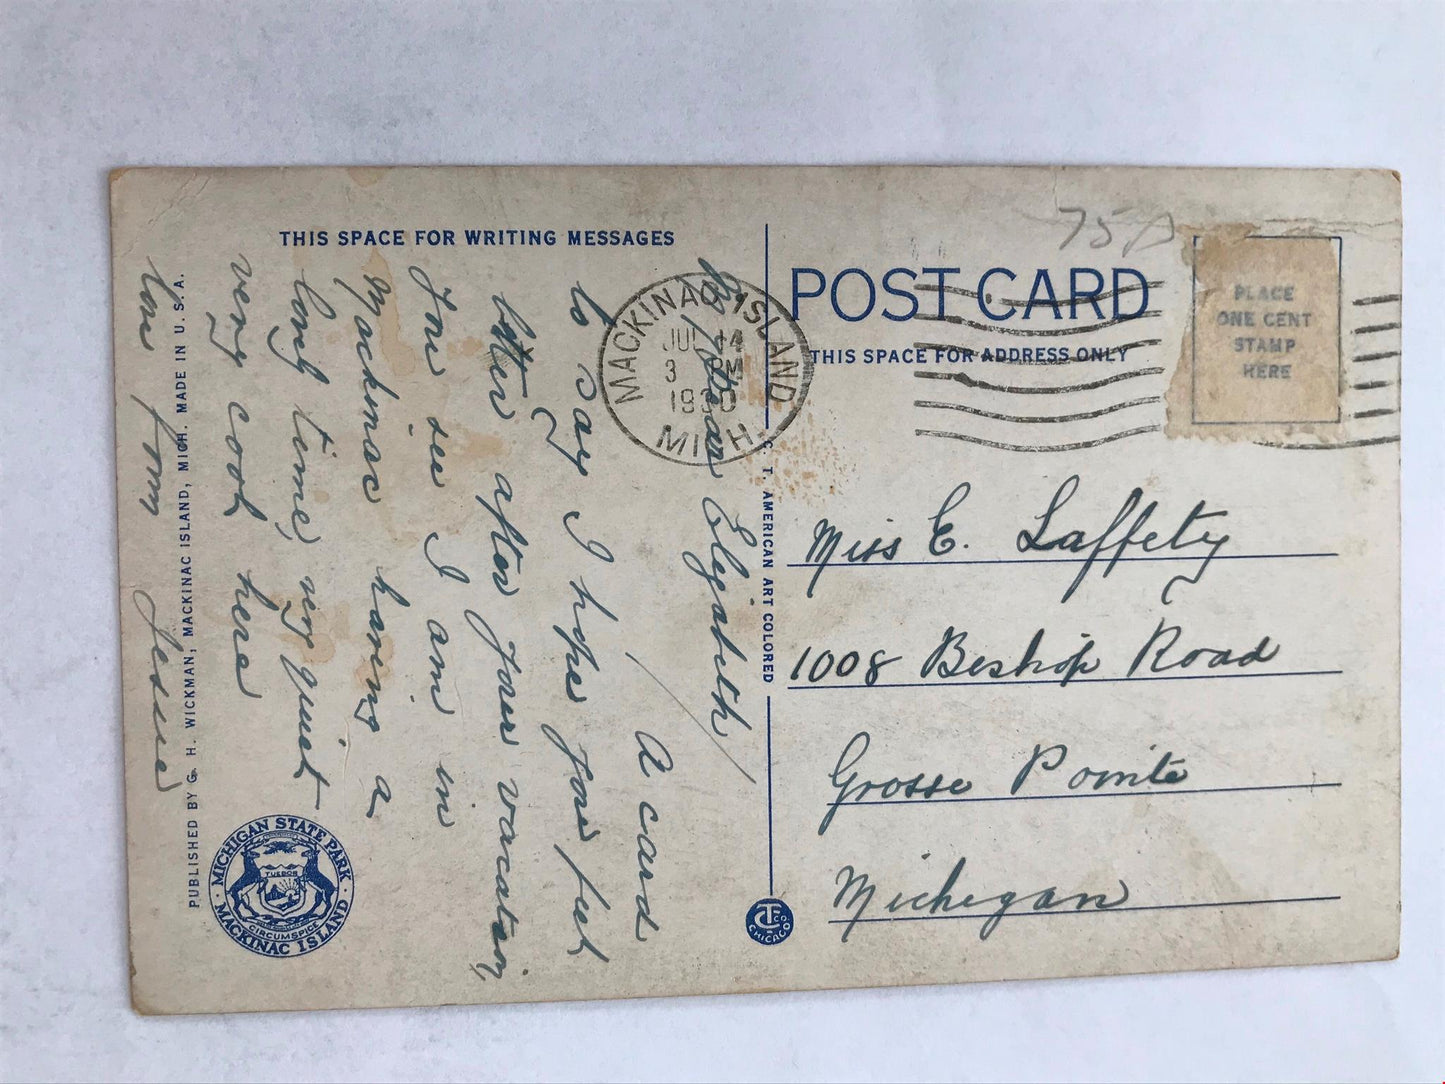 THIS SPACE FOR WRITING MESSAGES
My Dear Elizabeth/
A card
to say I hope you feel
better after your vacation,
You see I am in
Mackinac having a
long time, very quiet
very cool here
love from Jessie
PUBLISHED BY G. H. WICKMAN, MACKINAC ISLAND, MICH. MADE IN U. S. A.
MICHIGAN STATE PARK
TUEBOR
CIRCUMSPICE
MACKINAC ISLAND
MACKINAC ISLAND
JUL 14
3 PM
MICH.
C. T. AMERICAN ART COLORED
CT CO
CHICAGO
75
POST CARD
THIS SPACE FOR ADDRESS ONLY
PLACE
ONE CENT
STAMP
HERE
Miss E. Laffety
1008 Beshop Road
Grosse Pointe
Michegan